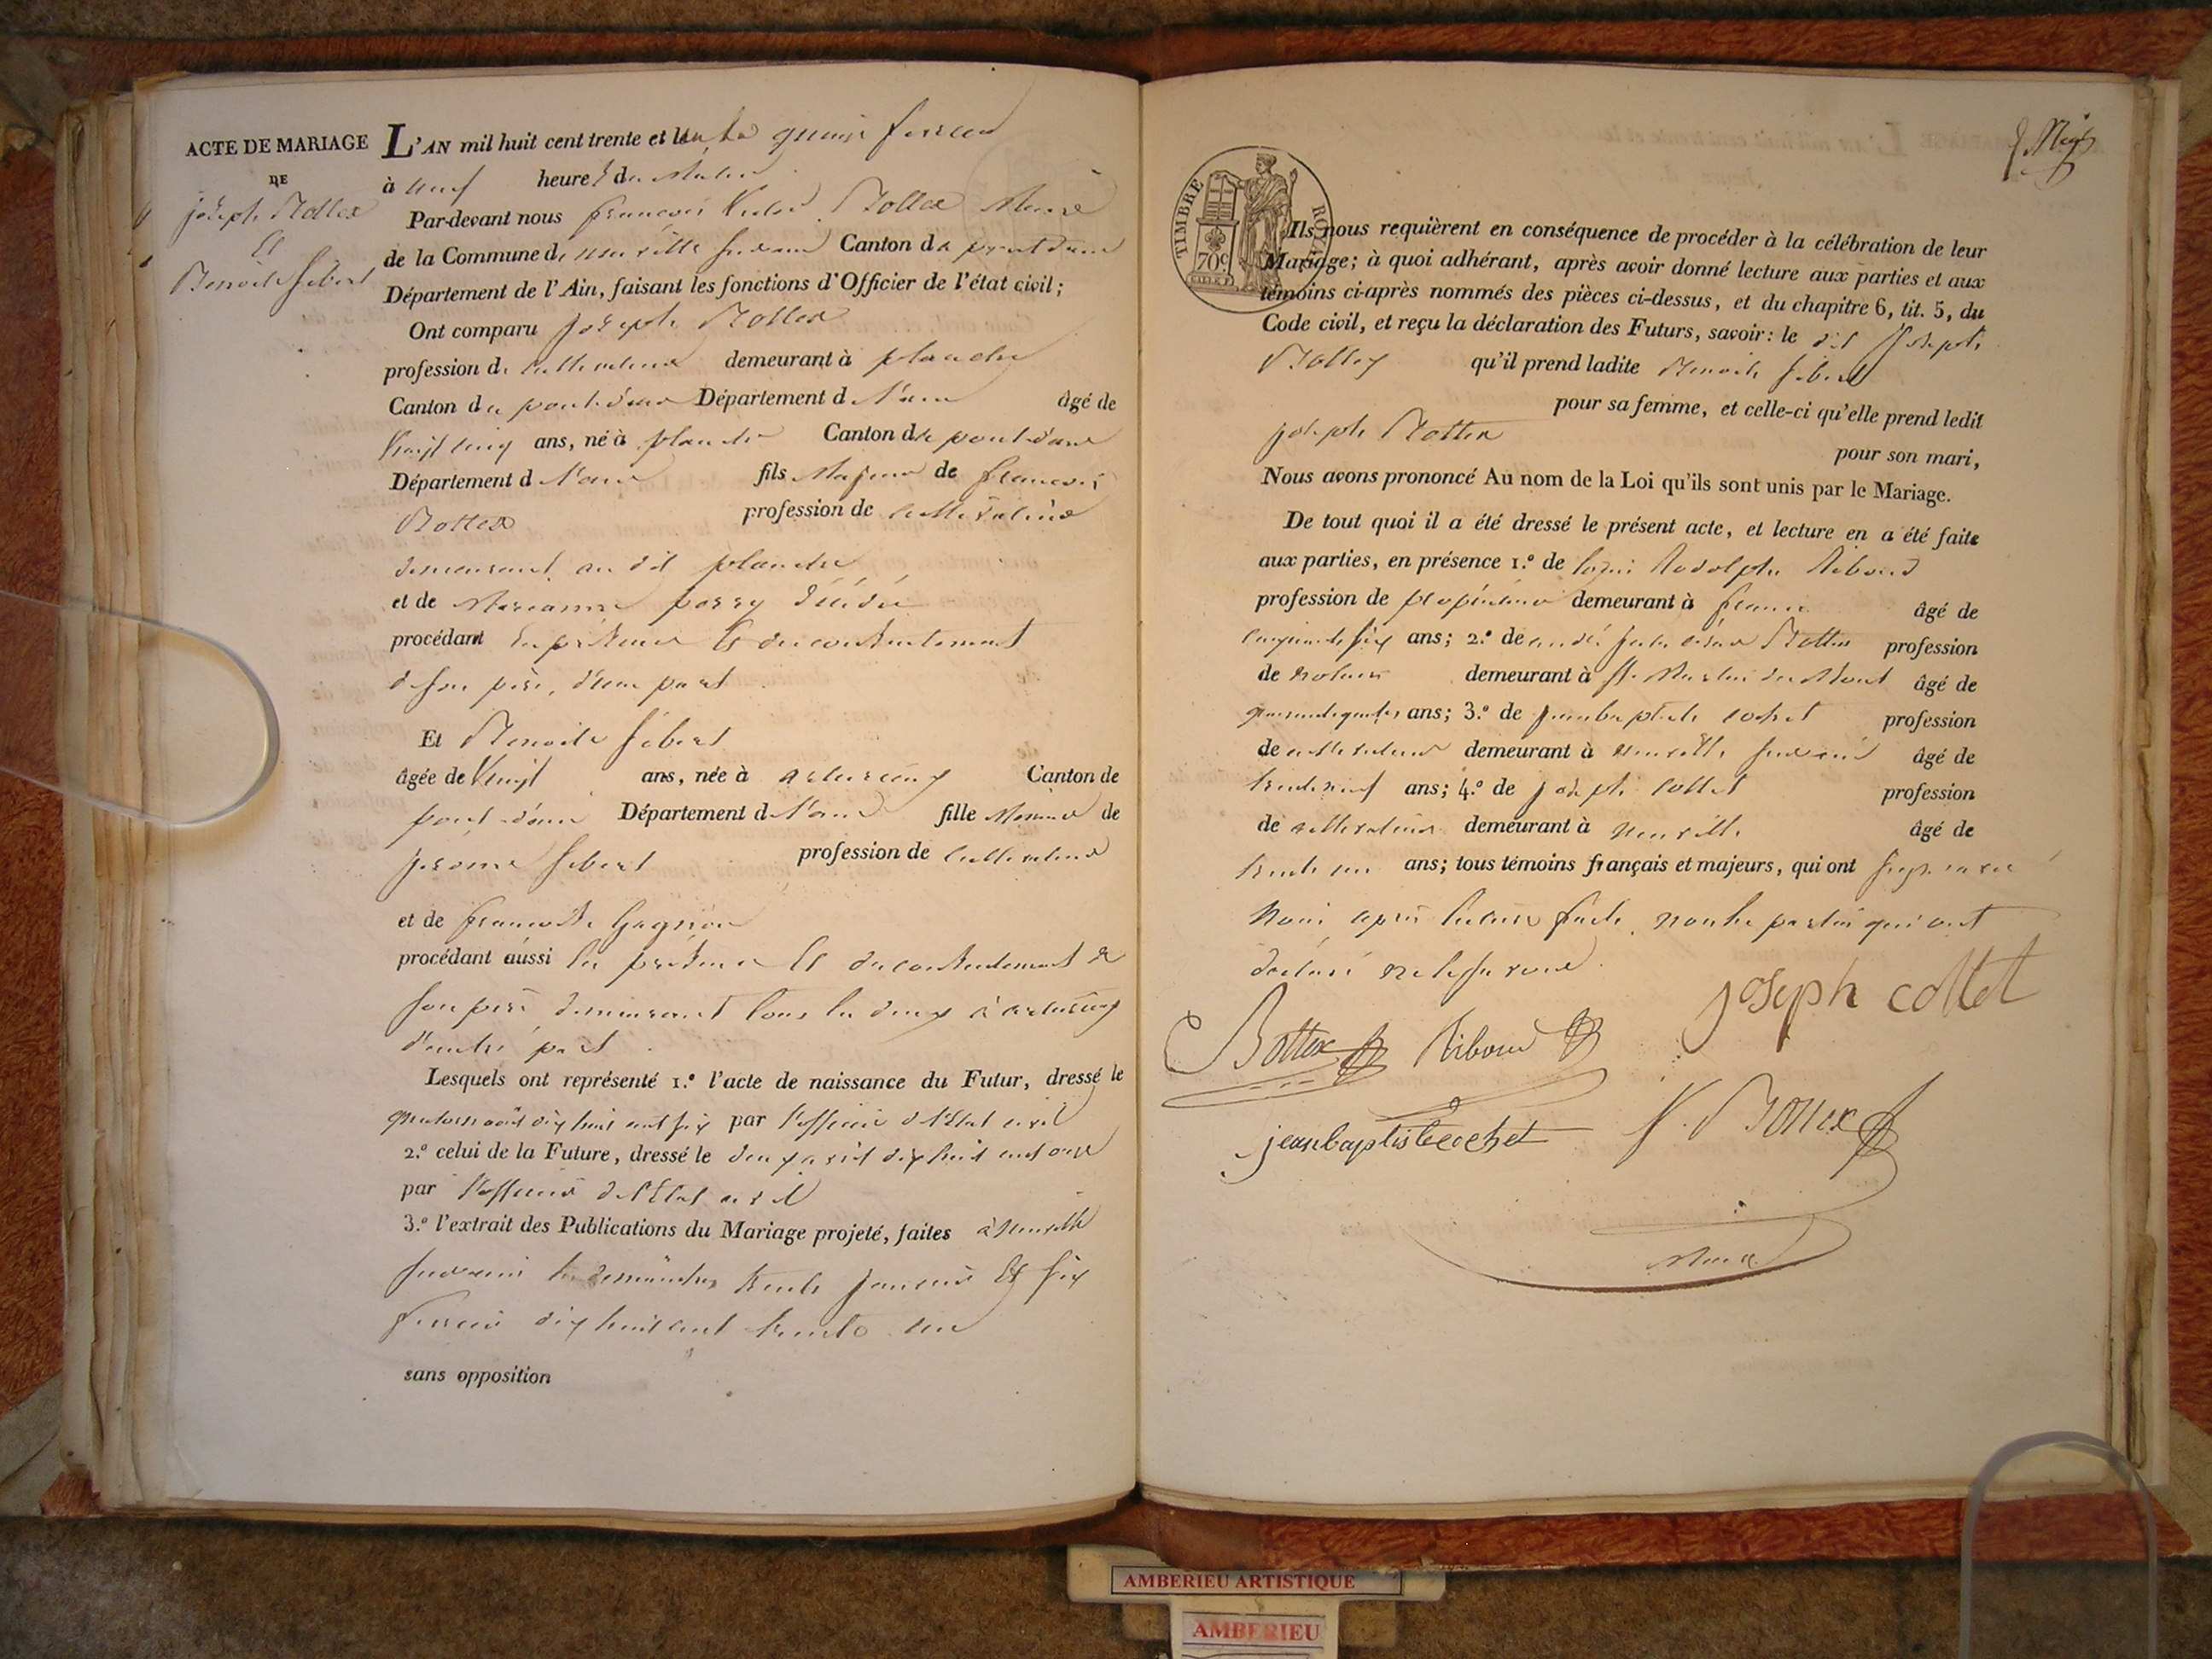 ACTE DE MARIAGE
DE
joseph Bottex
Et
Benoite sibert
L'AN mil huit cent trente et un, le quinze fevrier
à neuf heures du matin
Par-devant nous françois Victor Bottex Maire
de la Commune de neuville sur ain Canton de pont d'ain
Département de l'Ain, faisant les fonctions d'Officier de l'état civil;
Ont comparu Joseph Bottex
profession de cultivateur demeurant à planche
Canton de pont d'ain Département de l'ain âgé de
Vingt cinq ans, né à planche Canton de pont d'ain
Département de l'ain fils Majeur de francois
Bottex profession de cultivateur
demeurant au dit planche
et de Marianne perry décédée
procédant en présence et du consentement
de son père, d'une part
Et Benoite sibert
âgée de Vingt ans, née à Canton de
pont d'ain Département de l'ain fille Mineure de
jerome sibert profession de cultivateur
et de francoise gagnon
procédant aussi en présence et du consentement de
son père demeurant tous les deux à
d'autre part
Lesquels ont représenté 1.° l'acte de naissance du Futur, dressé le
quatorze août dix huit cent six par l'officier de l'Etat civil
2.° celui de la Future, dressé le deux avril dix huit cent onze
par l'officier de l'Etat civil
3.° l'extrait des Publications du Mariage projeté, faites à neuville
sur ain les dimanches trente janvier et six
fevrier dix huit cent trente un
sans opposition
TIMBRE ROYAL
70c
Ils nous requièrent en conséquence de procéder à la célébration de leur
Mariage; à quoi adhérant, après avoir donné lecture aux parties et aux
témoins ci-après nommés des pièces ci-dessus, et du chapitre 6, tit. 5, du
Code civil, et reçu la déclaration des Futurs, savoir: le dit Joseph
Bottex qu'il prend ladite Benoite sibert
pour sa femme, et celle-ci qu'elle prend ledit
joseph Bottex
pour son mari,
Nous avons prononcé Au nom de la Loi qu'ils sont unis par le Mariage.
De tout quoi il a été dressé le présent acte, et lecture en a été faite
aux parties, en présence 1.° de louis Rodolphe Riboud
profession de propriétaire demeurant à âgé de
cinquante six ans; 2.° de andré jules césar Bottex profession
de notaire demeurant à st Martin du Mont âgé de
quarante quatre ans; 3.° de jean baptiste cochet profession
de cultivateur demeurant à neuville sur ain âgé de
trente neuf ans; 4.° de joseph collet profession
de cultivateur demeurant à neuville âgé de
trente un ans; tous témoins français et majeurs, qui ont signé avec
nous après lecture faite, non les parties qui ont
déclaré ne le savoir.
joseph collet
Bottex Riboud
jean baptiste cochet V. Bottex
Maire
AMBERIEU ARTISTIQUE
AMBERIEU